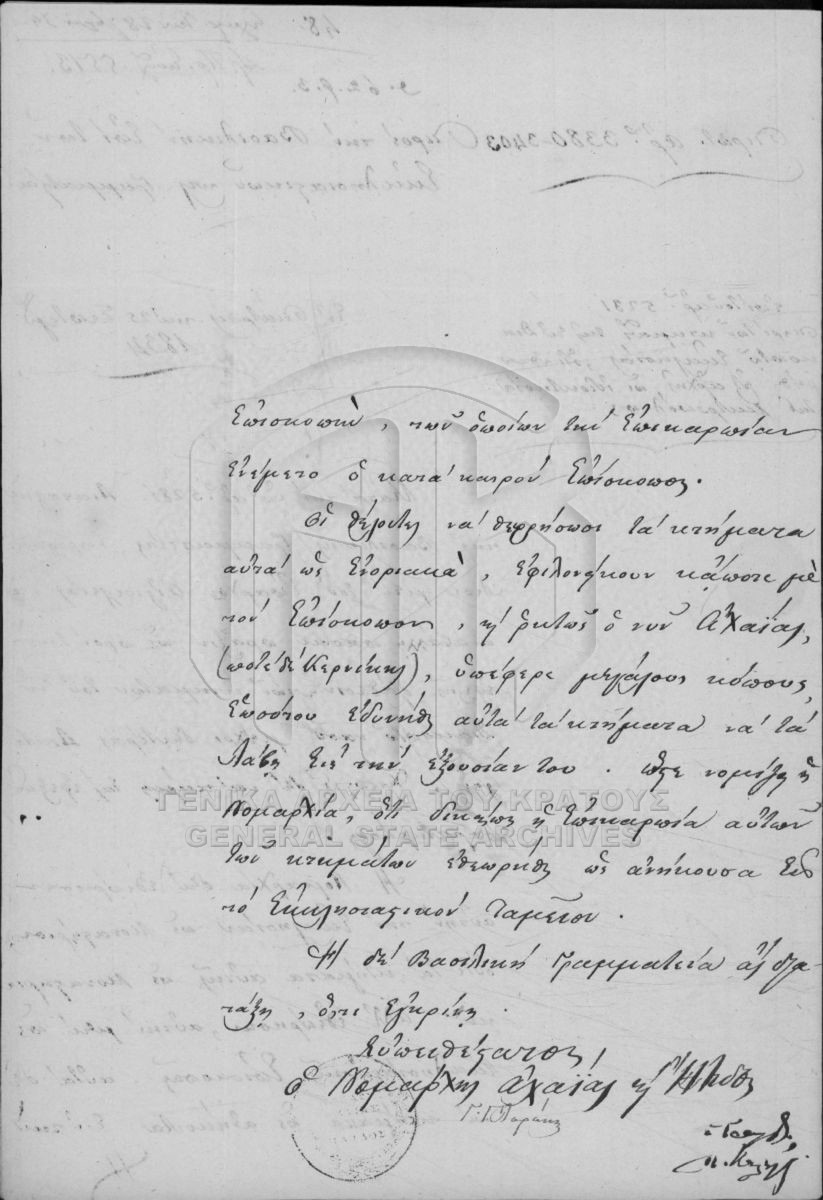 Ἐπισκοπὴ, τῶν ὁποίων τὴν Ἐπικαρπίαν
Ἐνέμετο ὁ κατὰ καιρὸν Ἐπίσκοπος.
Οἱ θέλοντες νὰ θεωρήσωσι τὰ κτήματα
αὐτὰ ὡς Ἐνοριακὰ, ἐφιλονείκουν κάποτε μὲ
τὸν Ἐπίσκοπον, καὶ ὁ νῦν Ἀχαΐας,
(ποτὲ δὲ Κερνίκης), ὑπέφερε μεγάλους κόπους,
ἐδυνήθη αὐτὰ τὰ κτήματα νὰ τὰ
λάβῃ εἰς τὴν ἐξουσίαν του. ὥστε νομίζει ἡ
Νομαρχία, ὅτι δικαίως ἡ Ἐπικαρπία αὐτῶν
τῶν κτημάτων ἐθεωρήθη ὡς ἀνήκουσα εἰς
τὸ Ἐκκλησιαστικὸν Ταμεῖον.
Ἡ δὲ Βασιλικὴ Γραμματεία ἂς δια-
τάξῃ, ὅ,τι ἐγκρίνῃ.
Εὐπειθέστατος,
ὁ Νομάρχης Ἀχαΐας καὶ Ἤλιδος
ΓΕΝΙΚΑ ΑΡΧΕΙΑ ΤΟΥ ΚΡΑΤΟΥΣ
GENERAL STATE ARCHIVES